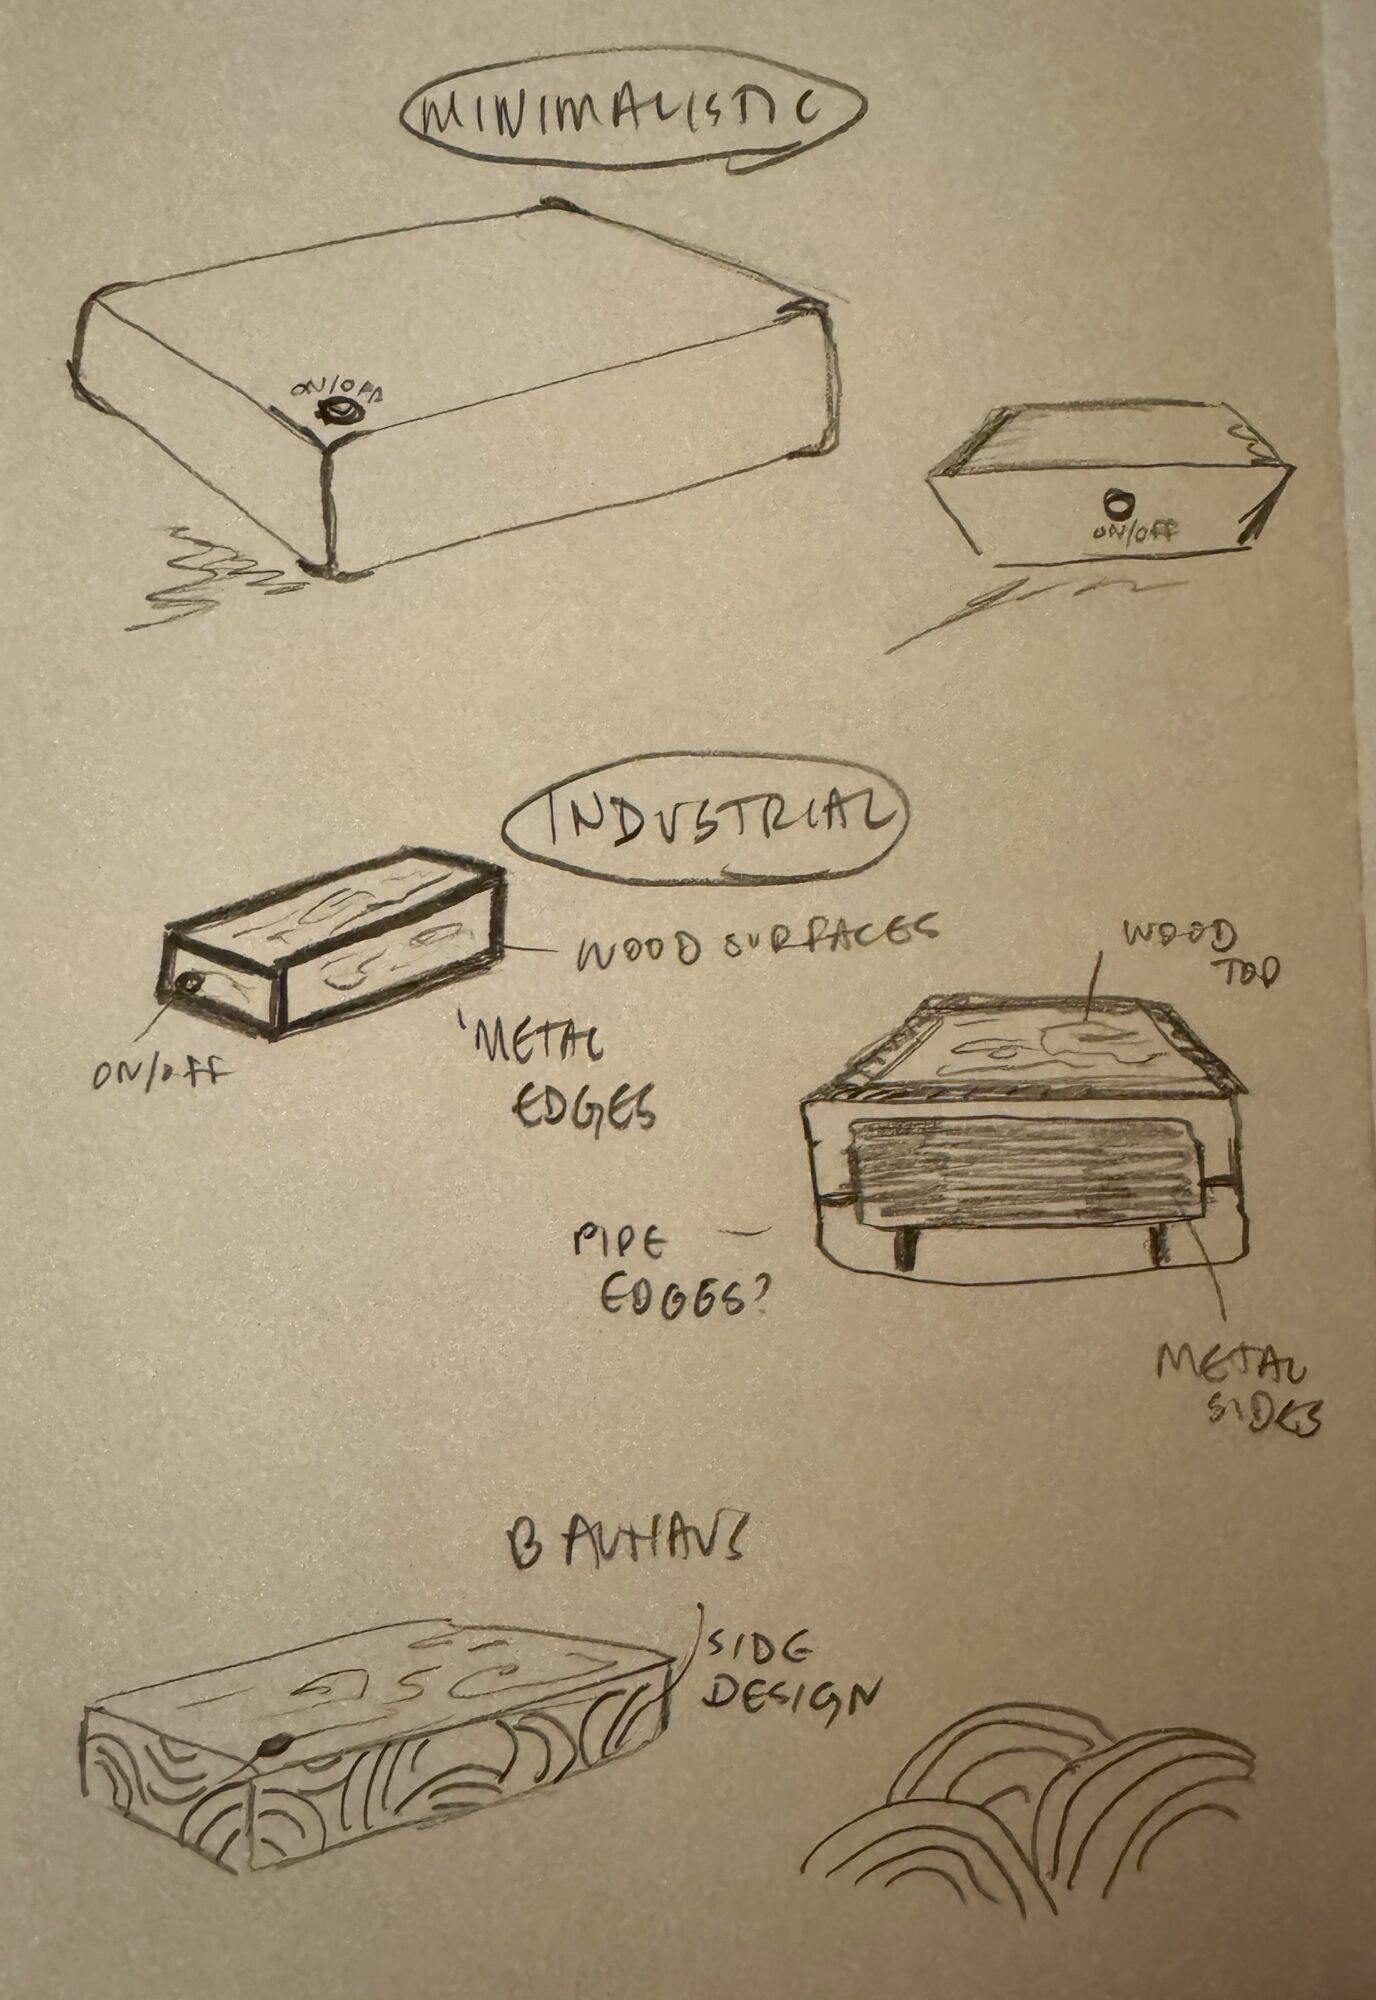 MINIMALISTIC
ON/OFF
ON/OFF
INDUSTRIAL
WOOD SURFACES
WOOD
TOP
ON/OFF
METAL
EDGES
PIPE
EDGES?
METAL
SIDES
BAUHAUS
SIDE
DESIGN